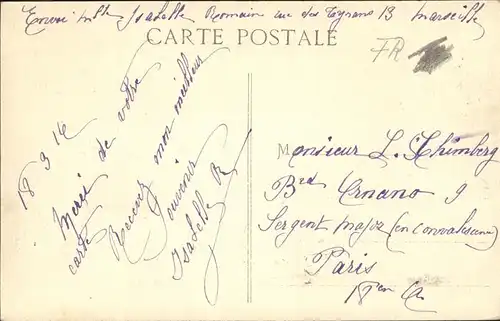 Envoi Mlle Isabelle Romain rue des Tyrans 13 Marseille
CARTE POSTALE
FR
18 3 16
Merci de votre
carte
Recevez mon meilleur
Souvenir
Isabelle R
Monsieur L. Chimberg
Brd Ornano 9
Sergent major (en convalescence)
Paris
18 en